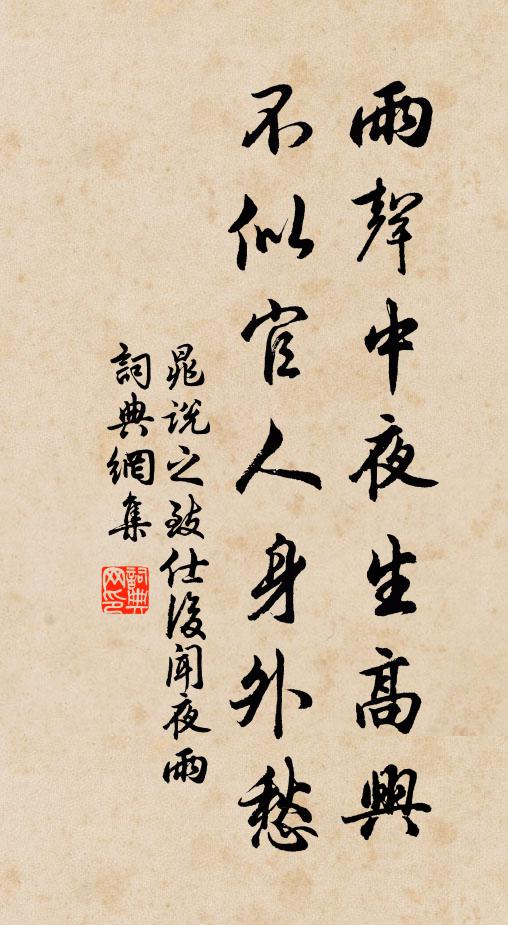 雨聲中夜生高興
不似官人身外愁
晁說之致仕後聞夜雨
詞典網集
詞典
网印